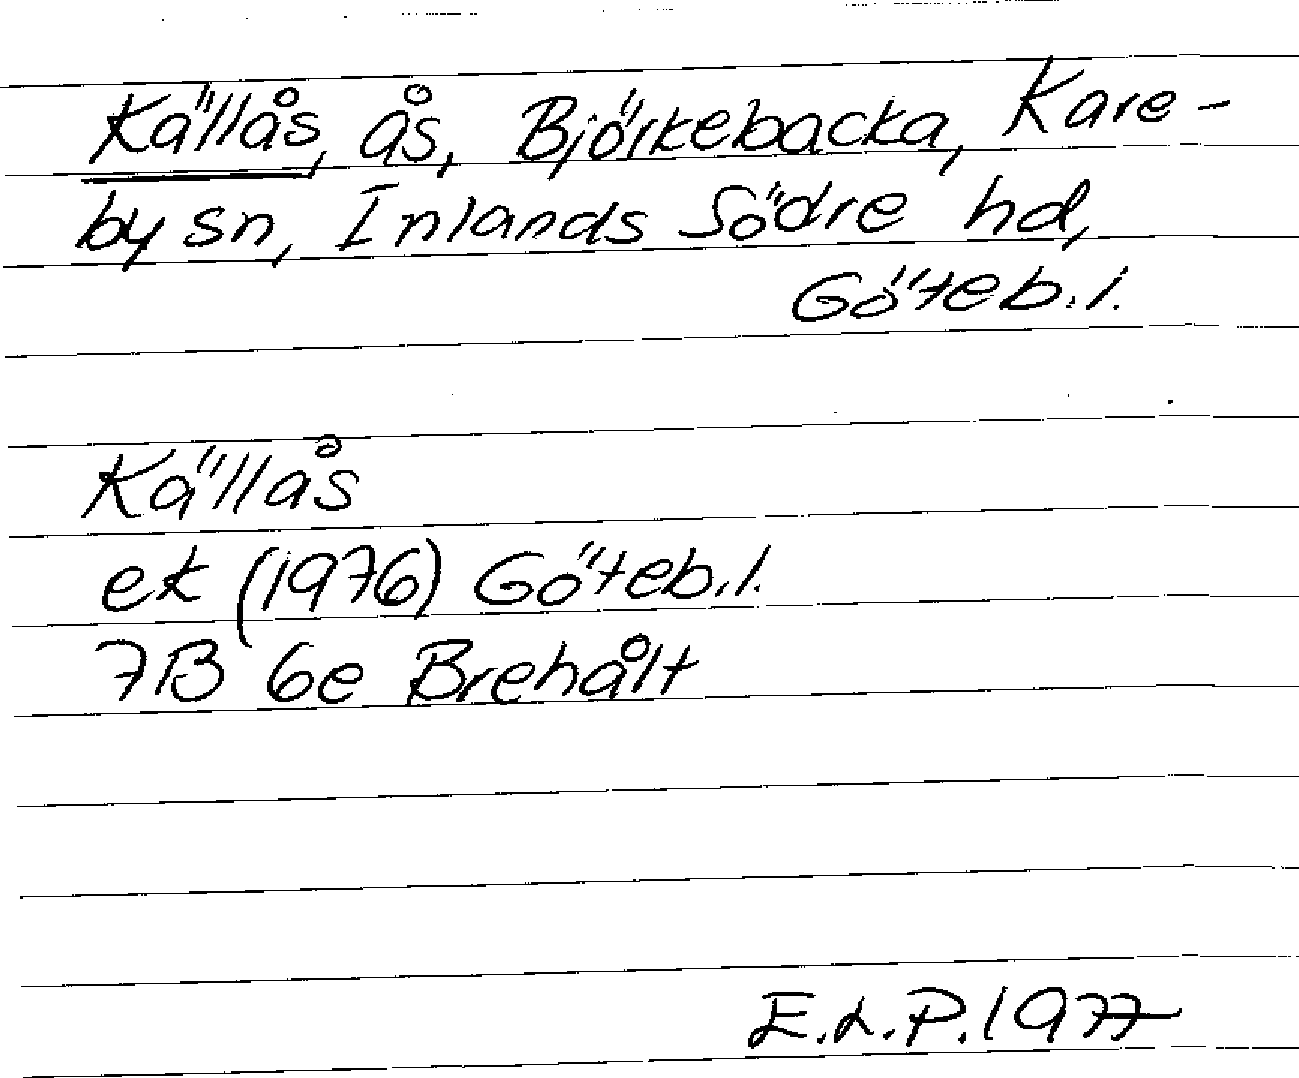 Källås, ås, Björkebacka, Kare-
by sn, Inlands Södre hd,
Göteb.l.
Källås
ek (1976) Göteb.l.
7B 6e Brehålt
E.L.P. 1977